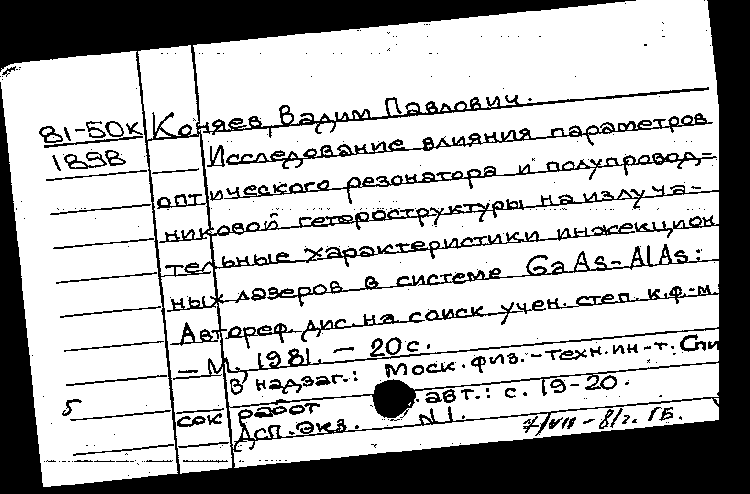 81-50к Коняев, Вадим Павлович.
1898 Исследование влияния параметров
оптического резонатора и полупровод=
никовой гетероструктуры на излуча-
тельные характеристики инжекцион
ных лазеров в системе GaAs-AlAs:
Автореф. дис. на соиск. учен. степ. к.ф.-м.
– М., 1981. – 20 с.
В надзаг.: Моск. физ.-техн. ин-т. Спи
5 сок работ авт.: с. 19-20.
Дсп. Экз. N1.